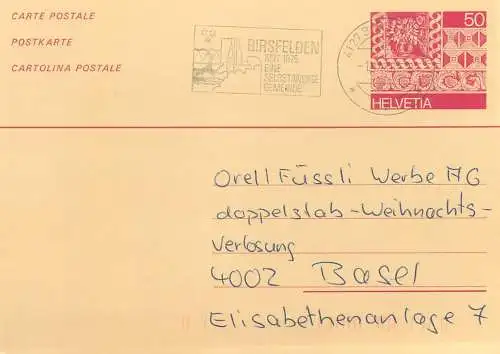 CARTE POSTALE
POSTKARTE
CARTOLINA POSTALE
BIRSFELDEN
SEIT 1875
EINE
SELBSTÄNDIGE
GEMEINDE
4127
50
HELVETIA
Orell Füssli Werbe AG
doppelstab-Weihnachts-
verlosung
4002 Basel
Elisabethenanlage 7